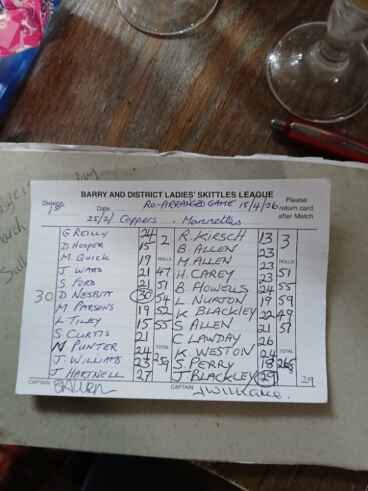 BARRY AND DISTRICT LADIES' SKITTLES LEAGUE
Division
Date
RE-ARRANGED GAME 15/4/26
Please return card after Match
25/2/ Coppers . Marinettes
G REILLY 24 2 R. KIRSCH 13 3
D HOOPER 15 B. ALLEN 23
M. QUICK 19 ROLLS M. ALLEN 23 ROLLS
J. WARD 21 47 H. CAREY 23 51
S. FORD 21 51 B. HOWELLS 24 55
30 D NESBITT 30 54 L NURTON 19 59
M PARSONS 19 52 K BLACKLEY 22 49
K TILEY 15 55 S ALLEN 21 51
S CURTIS 21 C LAWDAY 26
N PUNTER 24 TOTAL K. WESTON 24 TOTAL
J. WILLIAMS 23 259 S PERRY 18 265
J HARTNELL 27 J BLACKLEY 29 29
CAPTAIN
CAPTAIN J Williams.